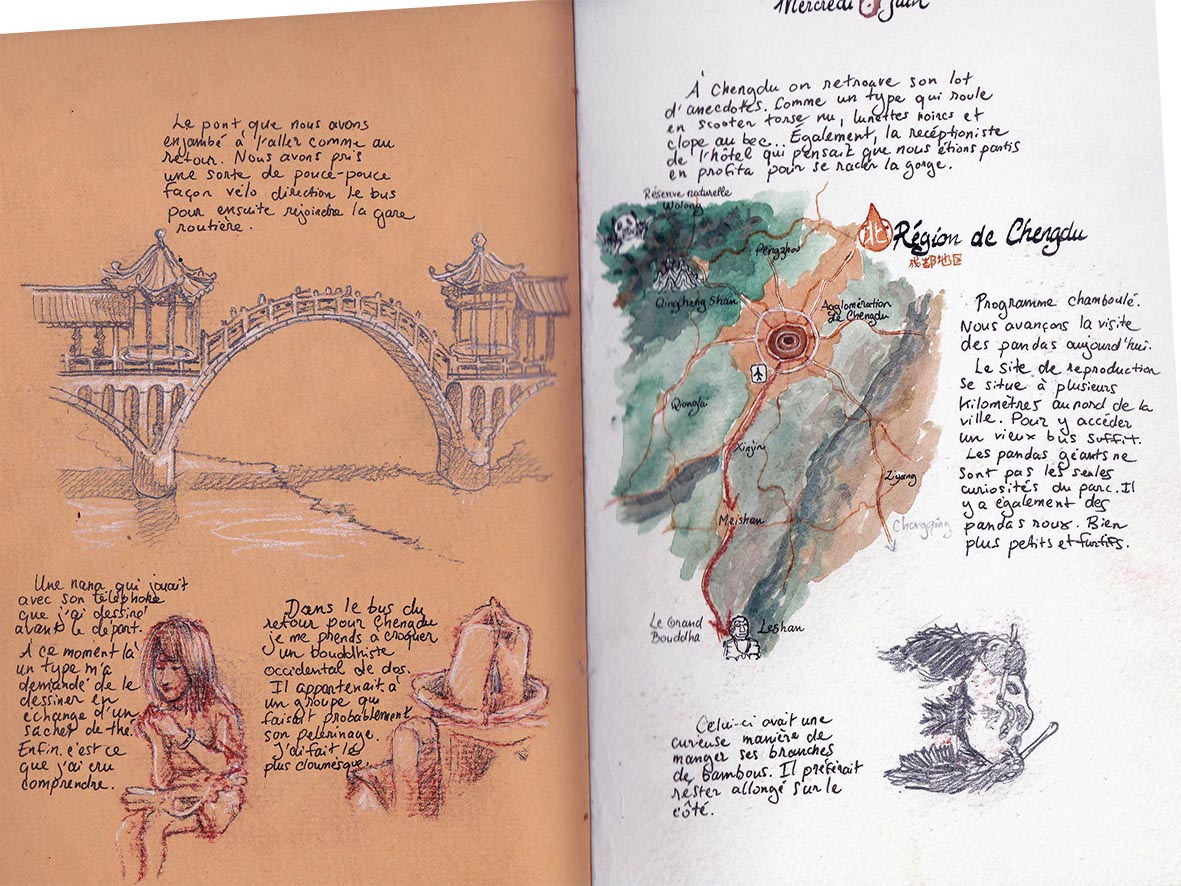 Le pont que nous avons
enjambé à l'aller comme au
retour. Nous avons pris
une sorte de pouce-pouce
façon vélo direction le bus
pour ensuite rejoindre la gare
routière.
Une nana qui jouait
avec son téléphone
que j'ai dessiné
avant le départ.
À ce moment là
un type m'a
demandé de le
dessiner en
echange d'un
sachet de thé.
Enfin c'est ce
que j'ai cru
comprendre.
Dans le bus du
retour pour Chengdu
je me prends à croquer
un bouddhiste
occidental de dos.
Il appartenait à
un groupe qui
faisait probablement
son pelérinage.
J'ai fait le
plus clownesque.
Mercredi Juin
À Chengdu on retrouve son lot
d'anecdotes. Comme un type qui roule
en scooter torse nu, lunettes noires et
clope au bec... Également, la recéptioniste
de l'hôtel qui pensait que nous étions partis
en profita pour se racler la gorge.
Réserve naturelle
Wolong
Pengzhou
北 Région de Chengdu
成都地区
Qingcheng Shan
Agglomération
de Chengdu
Qionglai
Xinjin
Ziyang
Meishan
Chongqing
Le Grand
Bouddha
Leshan
Programme chamboulé.
Nous avançons la visite
des pandas aujourd'hui.
Le site de reproduction
se situe à plusieurs
kilomètres au nord de la
ville. Pour y accéder
un vieux bus suffit.
Les pandas géants ne
sont pas les seules
curiosités du parc. Il
y a également des
pandas roux. Bien
plus petits et furtifs.
Celui-ci avait une
curieuse manière de
manger ses branches
de bambous. Il préférait
rester allongé sur le
côté.